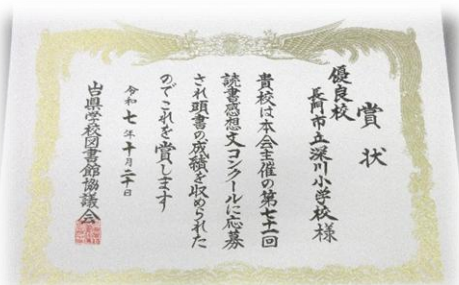 賞状
優良校
長門市立深川小学校様
貴校は本会主催の第七十一回
読書感想文コンクールに応募
され頭書の成績を収められた
のでこれを賞します
令和七年十月二十日
山口県学校図書館協議会